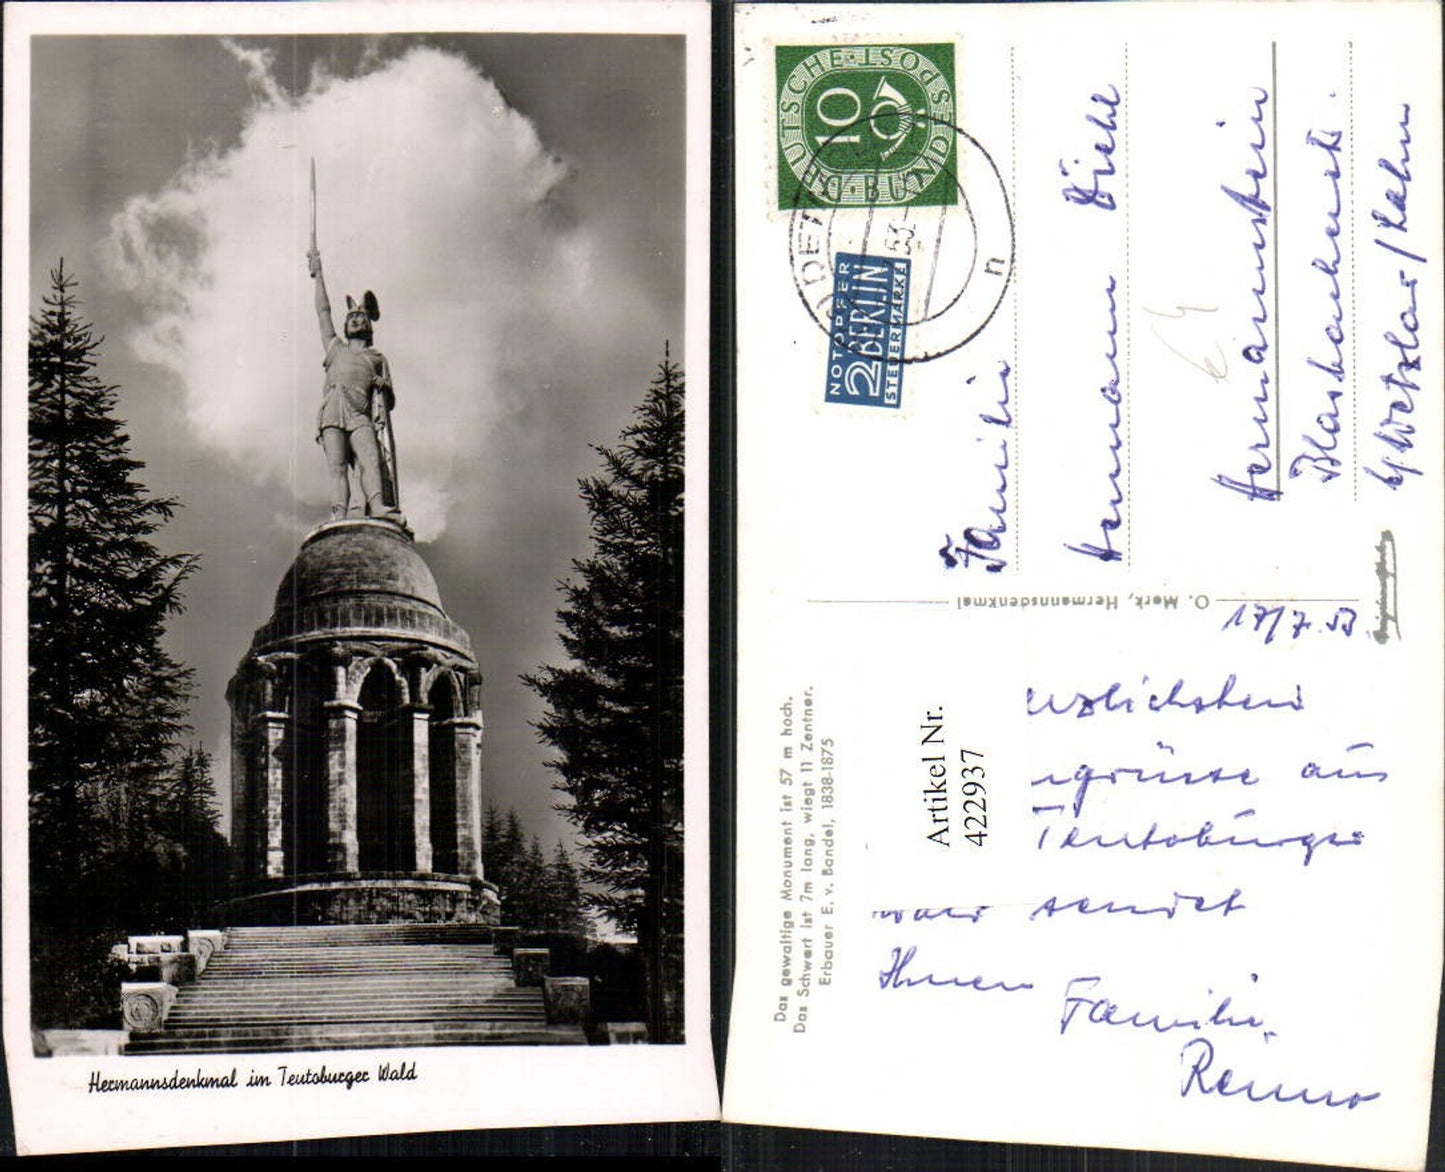 Hermannsdenkmal im Teutoburger Wald
DEUTSCHE·POST
BUNDES
10
NOTOPFER
2 BERLIN
STEUERMARKE
53
n
Familie
Hermann Diehl
Hermannstein
b/Wetzlar/Lahn
O. Merk, Hermannsdenkmal
Das gewaltige Monument ist 57 m hoch.
Das Schwert ist 7m lang, wiegt 11 Zentner.
Erbauer E. v. Bandel, 1838-1875
Artikel Nr.
422937
17/7.53
rzlichsten
grüsse aus
Teutoburger
Wald sendet
Ihnen
Familie
Renno